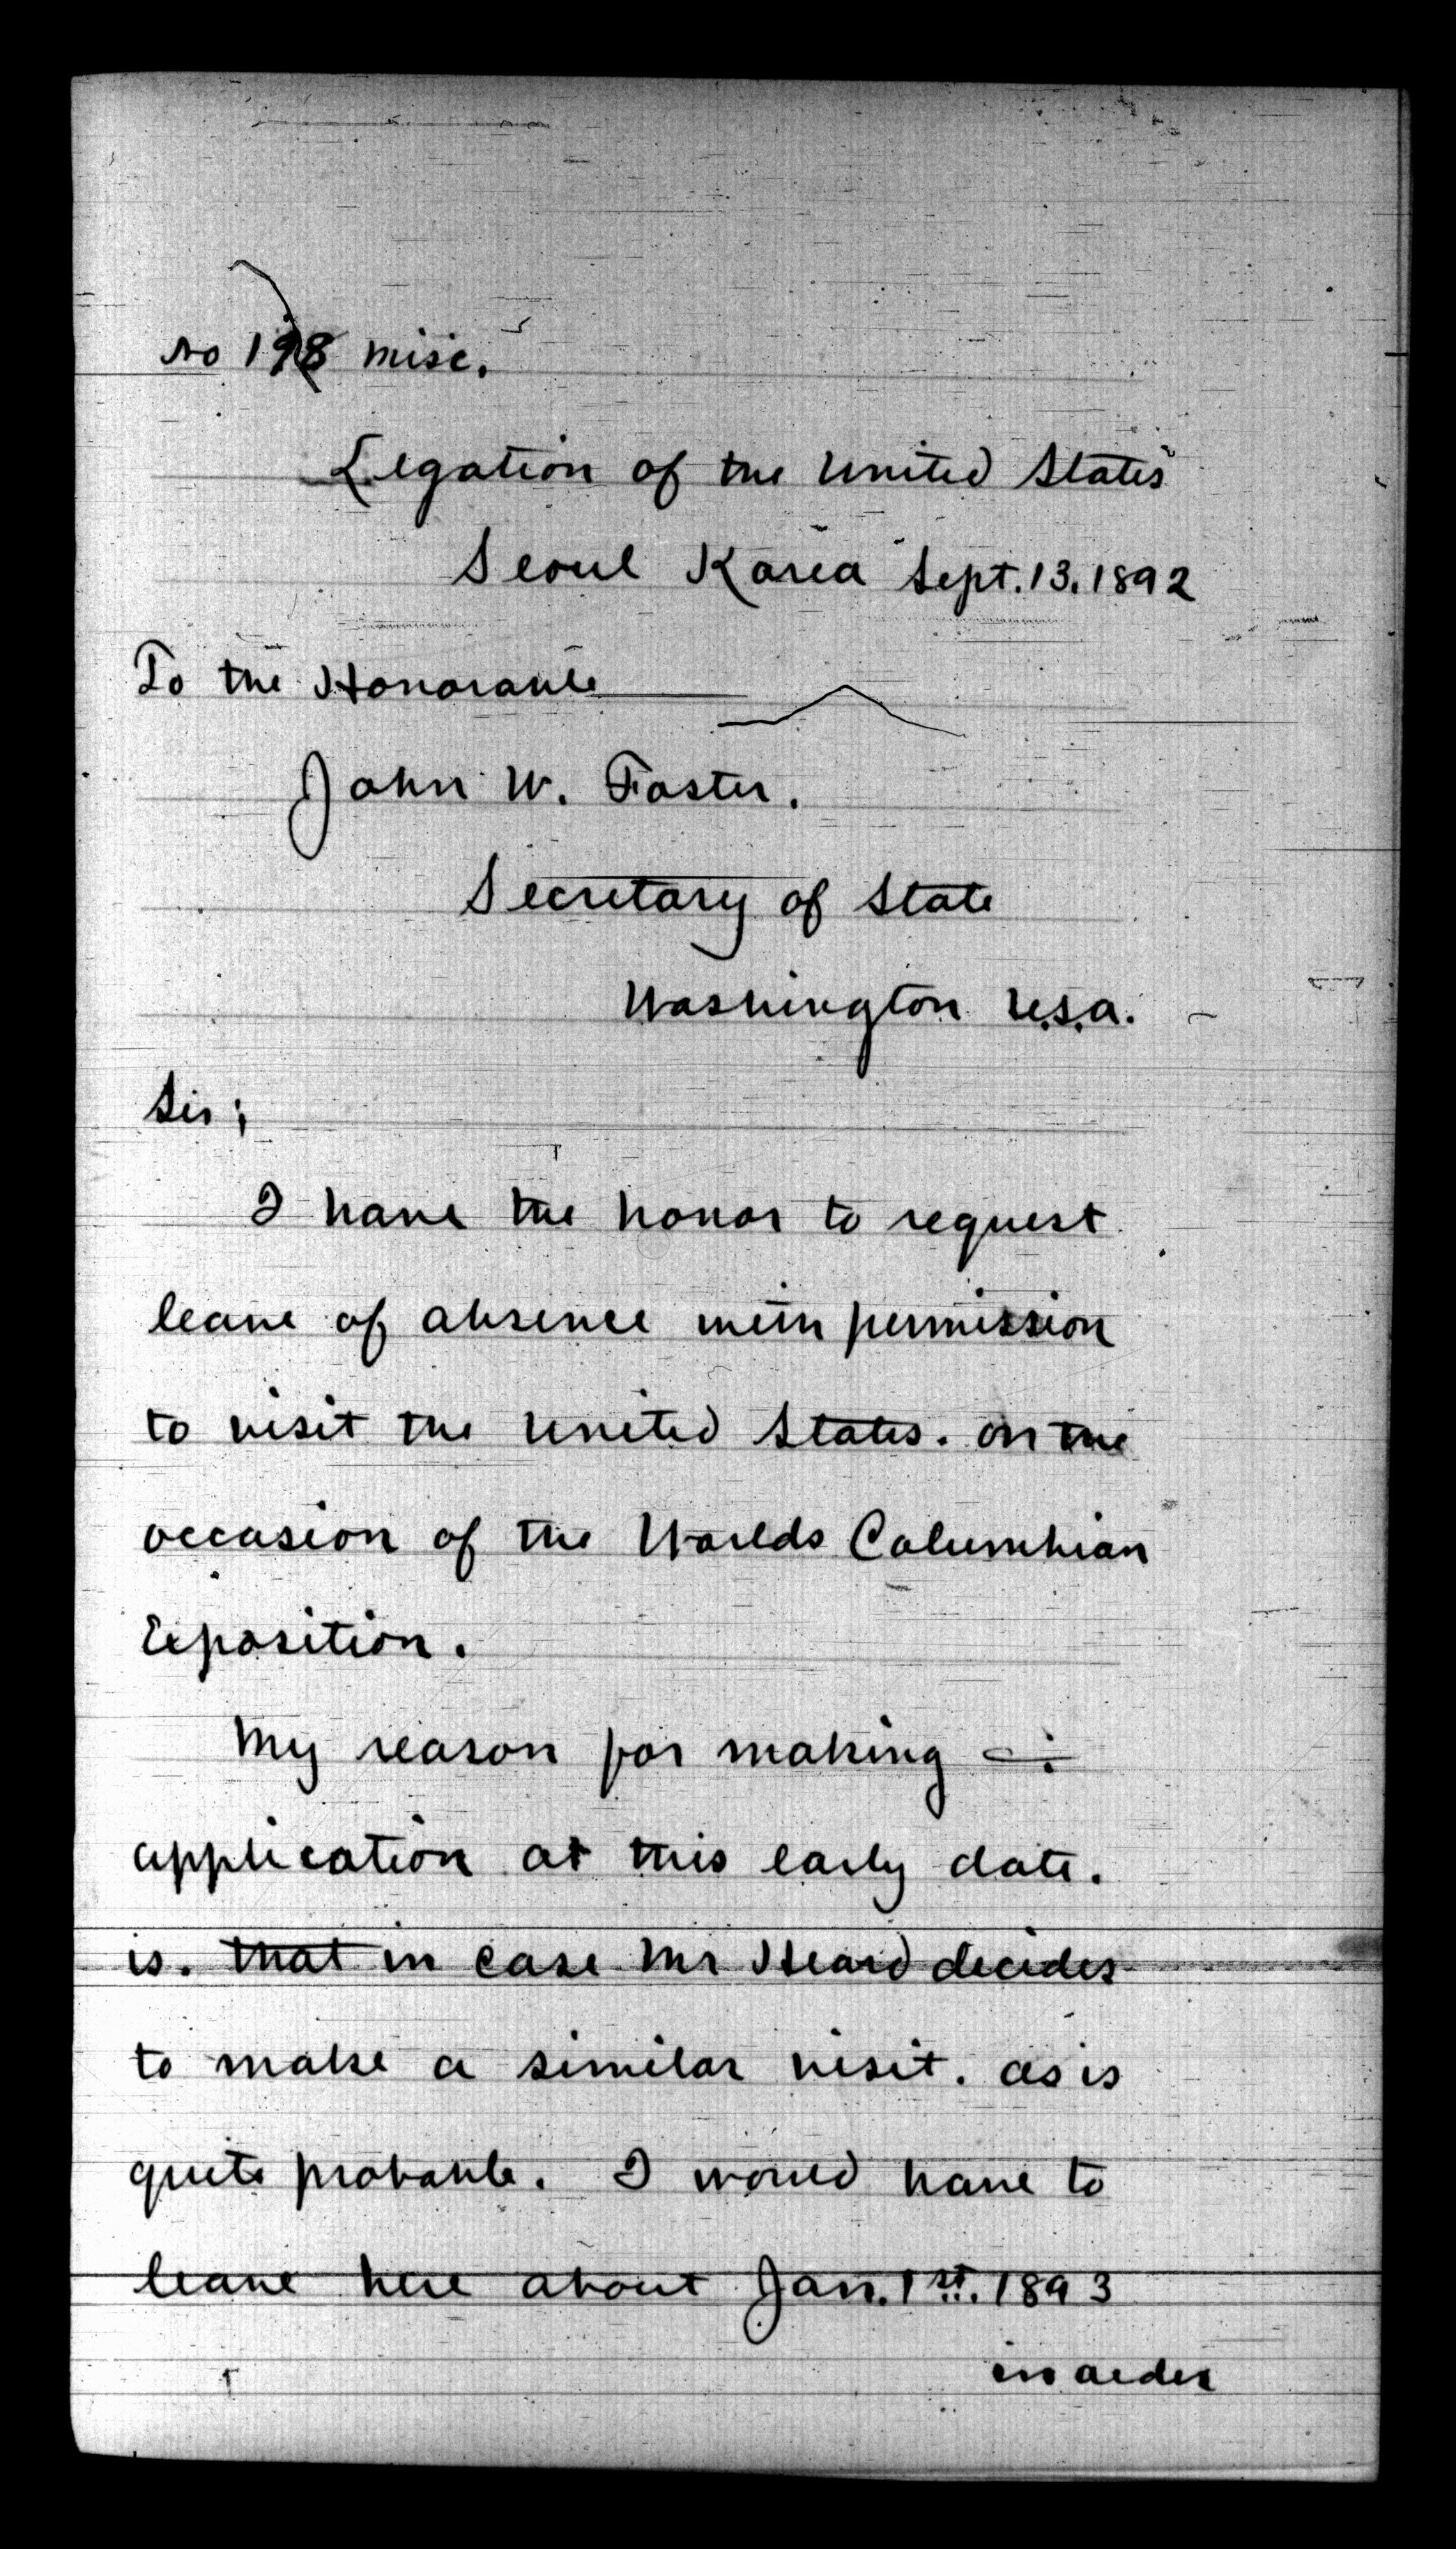 No 198 misc.
Legation of the United States
Seoul Korea Sept. 13. 1892
To the Honorable
John W. Foster.
Secretary of State
Washington U.S.A.
Sir;
I have the honor to request
leave of absence with permission
to visit the United States. on the
occasion of the Worlds Columbian
Exposition.
My reason for making
application at this early date.
is. that in case Mr Heard decides
to make a similar visit. as is
quite probable. I would have to
leave here about Jan. 1st. 1893
in order